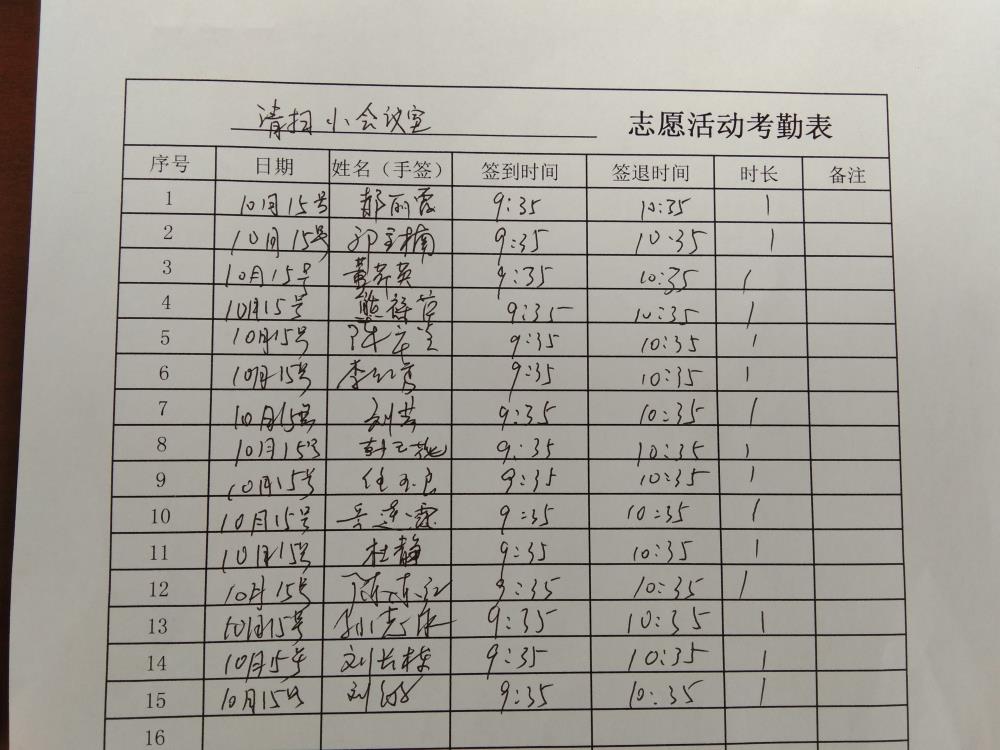 清扫小会议室 志愿活动考勤表
序号 日期 姓名（手签） 签到时间 签退时间 时长 备注
1 10月15号 郝丽霞 9:35 10:35 1
2 10月15号 9:35 10:35 1
3 10月15号 9:35 10:35 1
4 10月15号 9:35 10:35 1
5 10月15号 9:35 10:35 1
6 10月15号 9:35 10:35 1
7 10月15号 9:35 10:35 1
8 10月15号 9:35 10:35 1
9 10月15号 9:35 10:35 1
10 10月15号 9:35 10:35 1
11 10月15号 杜静 9:35 10:35 1
12 10月15号 陈东红 9:35 10:35 1
13 10月15号 9:35 10:35 1
14 10月15号 刘长栋 9:35 10:35 1
15 10月15号 9:35 10:35 1
16